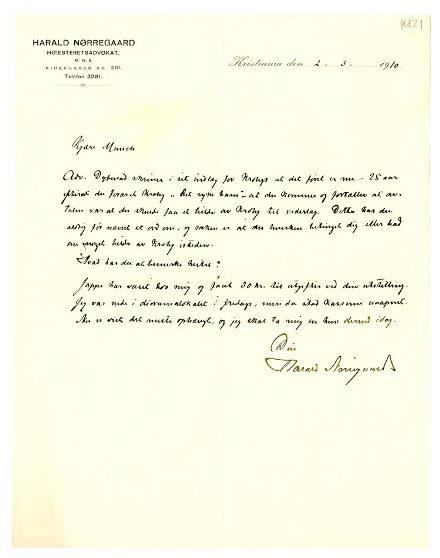 K821
HARALD NØRREGAARD
HØIESTERETSADVOKAT.
M. N. S.
KIRKEGADEN NR.
Telefon 3281.
Kristiania den 2. 3. 1910.
Kjære Munch
Adv. Dybwad skriver i sit indlæg for Krohgs at det først er nu – 25 aar
efterat du foræret Krohg „Det syge barn" – at du kommer og fortæller at av-
talen var at du skulde faa et billede av Krohg til vederlag. Dette har du
aldrig før nævnt et ord om, og saken er at du hverken betinget dig eller bad
om noget billede av Krohg isteden.
Hvad har du at bemerke hertil?
Jappe har været hos mig og faat 30 kr. til utgifter ved din utstilling.
Jeg var nede i dioramalokalet i fredags, men da stod kasserne uaapnet.
Nu er visst det meste ophængt, og jeg skal ta mig en tur derned idag.
Din
Harald Nørregaard